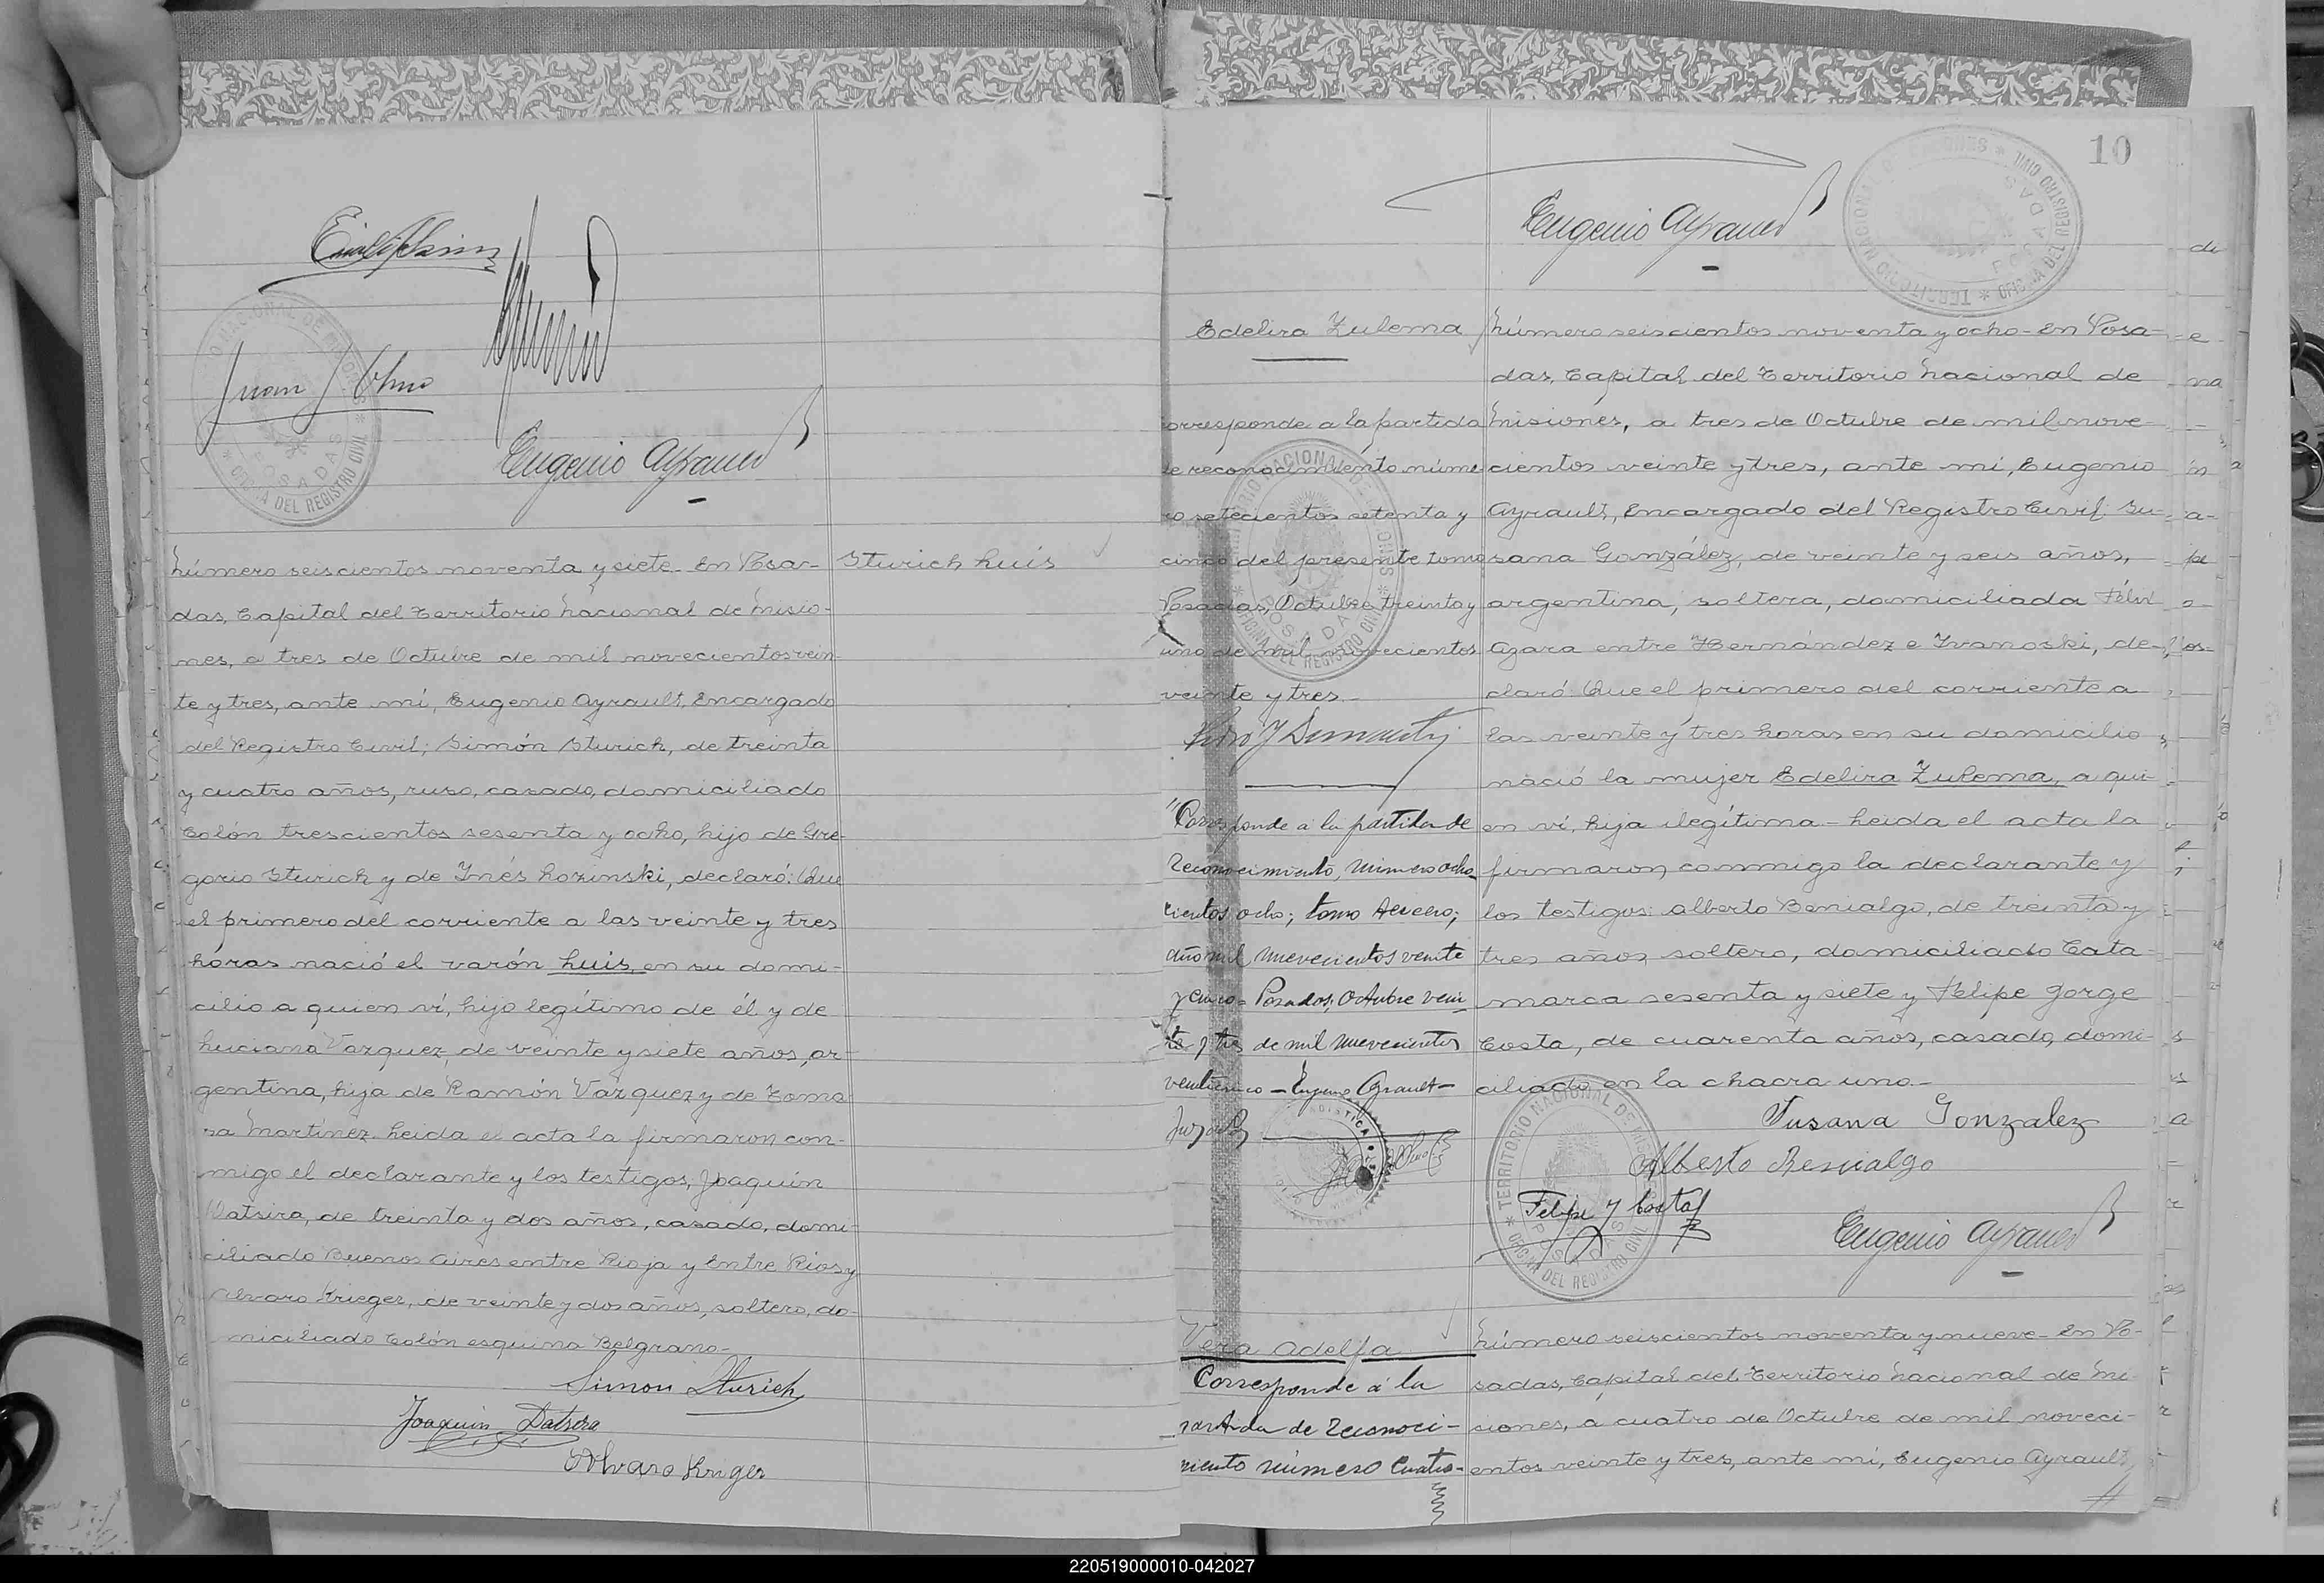 Juan J Olmo
Eugenio Ayrault
Número seiscientos noventa y siete- En Posa-
Sturich Luis
das, Capital del Territorio Nacional de Misio-
nes, a tres de Octubre de mil novecientos vein-
te y tres, ante mí, Eugenio Ayrault, Encargado
del Registro Civil; Simón Sturich, de treinta
y cuatro años, ruso, casado, domiciliado
Colón trescientos sesenta y ocho, hijo de Gre-
gorio Sturich y de Inés Lozinski, declaró: Que
el primero del corriente a las veinte y tres
horas nació el varón Luis, en su domi-
cilio a quien ví, hijo legítimo de él y de
Luciana Vazquez, de veinte y siete años, ar-
gentina, hija de Ramón Vazquez y de Toma
sa Martínez. Leida el acta la firmaron con-
migo el declarante y los testigos, Joaquín
Datsira, de treinta y dos años, casado, domi-
ciliado Buenos Aires entre Rioja y Entre Rios y
Alvaro Krieger, de veinte y dos años, soltero, do-
miciliado Colón esquina Belgrano-
Simon Sturich
Joaquin Datsira
Alvaro Kriger
10
Eugenio Ayrault
TERRITORIO NACIONAL DE MISIONES
OFICINA DEL REGISTRO CIVIL
POSADAS
Edelira Zulema
corresponde a la partida
de reconocimiento núme
ro setecientos setenta y
cinco del presente tomo
Posadas, Octubre treinta y
uno de mil novecientos
veinte y tres-
"Corresponde a la partida de
reconocimiento, número ocho
cientos ocho; tomo tercero;
año mil nuevecientos veinte
y cinco= Posadas, Octubre vein
te y tres de mil nuevecientos
veinticinco - Eugenio Ayrault-
Número seiscientos noventa y ocho- En Posa-
das, Capital del Territorio Nacional de
Misiones, a tres de Octubre de mil nove-
cientos veinte y tres, ante mí, Eugenio
Ayrault, Encargado del Registro Civil: Su-
sana González, de veinte y seis años,
argentina, soltera, domiciliada Félix
Azara entre Hernández e Ivanoski, de-
claró: Que el primero del corriente a
las veinte y tres horas en su domicilio
nació la mujer Edelira Zulema, a qui-
en ví, hija ilegítima- Leida el acta la
firmaron conmigo la declarante y
los testigos: Alberto Benialgo, de treinta y
tres años, soltero, domiciliado Cata-
marca sesenta y siete y Felipe Jorge
Costa, de cuarenta años, casado, domi-
ciliado en la chacra uno.-
Susana Gonzalez
Alberto Benialgo
Felipe J Costa
Eugenio Ayrault
Vera Adelfa
Corresponde a la
partida de reconoci-
miento número cuatro-
Número seiscientos noventa y nueve- En Po-
sadas, Capital del Territorio Nacional de Mi
siones, a cuatro de Octubre de mil noveci-
entos veinte y tres, ante mí, Eugenio Ayrault,
220519000010-042027